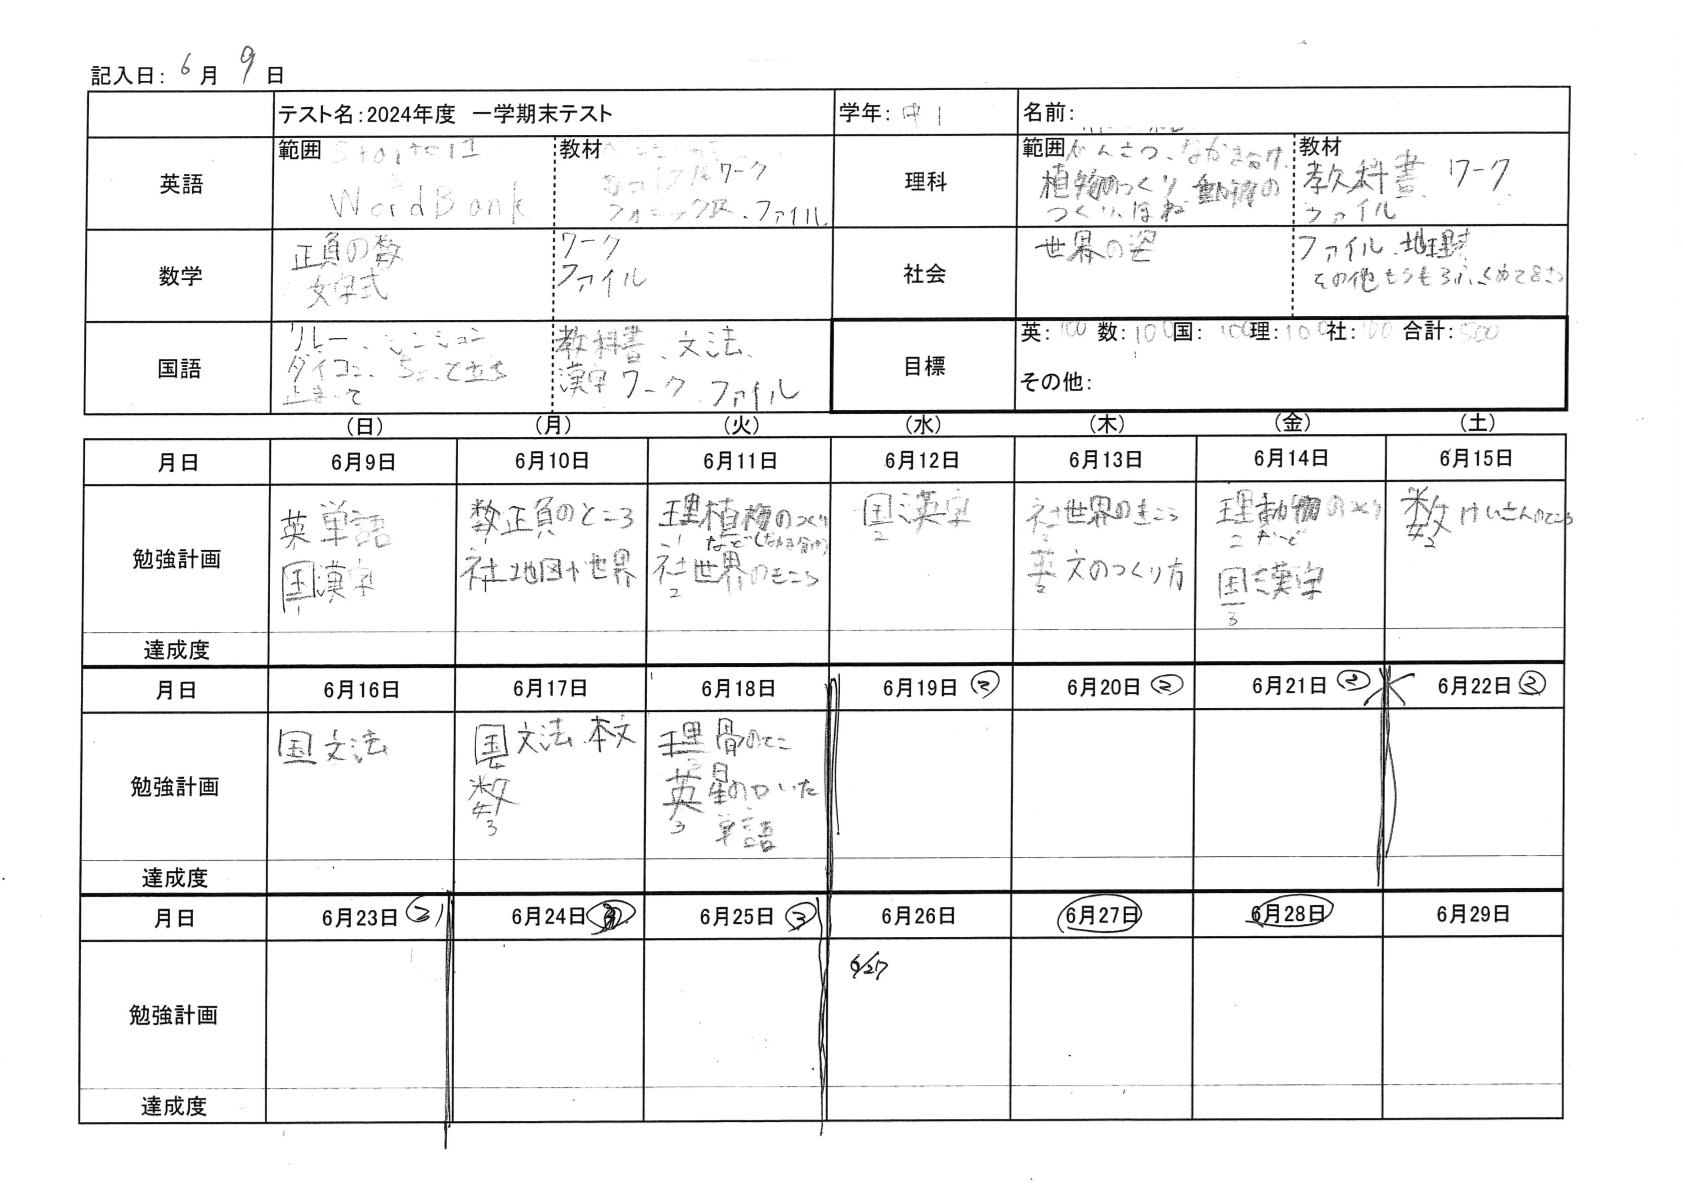 記入日: 6月 9日
テスト名:2024年度 一学期末テスト
学年: 中1
名前:
英語
範囲
WordBank
教材
ワーク
ファイル
理科
範囲 かんさつ、なかま分け
植物のつくり 動物の
つくり、ほね
教材
教科書 ワーク
ファイル
数学
正負の数
文字式
ワーク
ファイル
社会
世界の姿
ファイル、地理
その他
国語
リレー、シンシュン
ダイコン、ちょっと立ち
止まって
教科書、文法、
漢字ワーク ファイル
目標
英: 100 数: 100 国: 100 理: 100 社: 100 合計: 500
その他:
(日) (月) (火) (水) (木) (金) (土)
月日 6月9日 6月10日 6月11日 6月12日 6月13日 6月14日 6月15日
勉強計画
英 単語
国 漢字
1
数 正負のところ
1
社 地図や世界
理 植物のつくり
1 など(なかま分け)
社 世界のところ
2
国 漢字
2
社 世界のところ
英 文のつくり方
2
理 動物のつくり
2 など
国 漢字
3
数 けいさんのところ
2
達成度
月日 6月16日 6月17日 6月18日 6月19日 ② 6月20日 ② 6月21日 ② 6月22日 ②
勉強計画
国 文法
国 文法 本文
数
3
理 骨のとこ
3
英 星のついた
3 単語
達成度
月日 6月23日 6月24日 6月25日 ③ 6月26日 6月27日 6月28日 6月29日
勉強計画
6/27
達成度